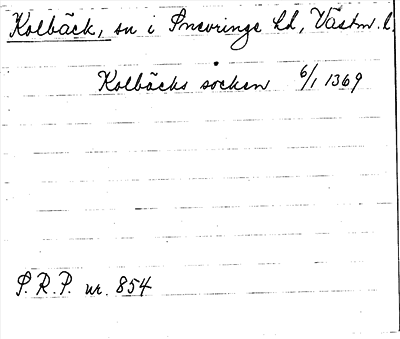 Kolbäck, sn i Snevringe hd, Västm. l.
Kolbäcks socken 6/1 1369
S.R.P. nr. 854